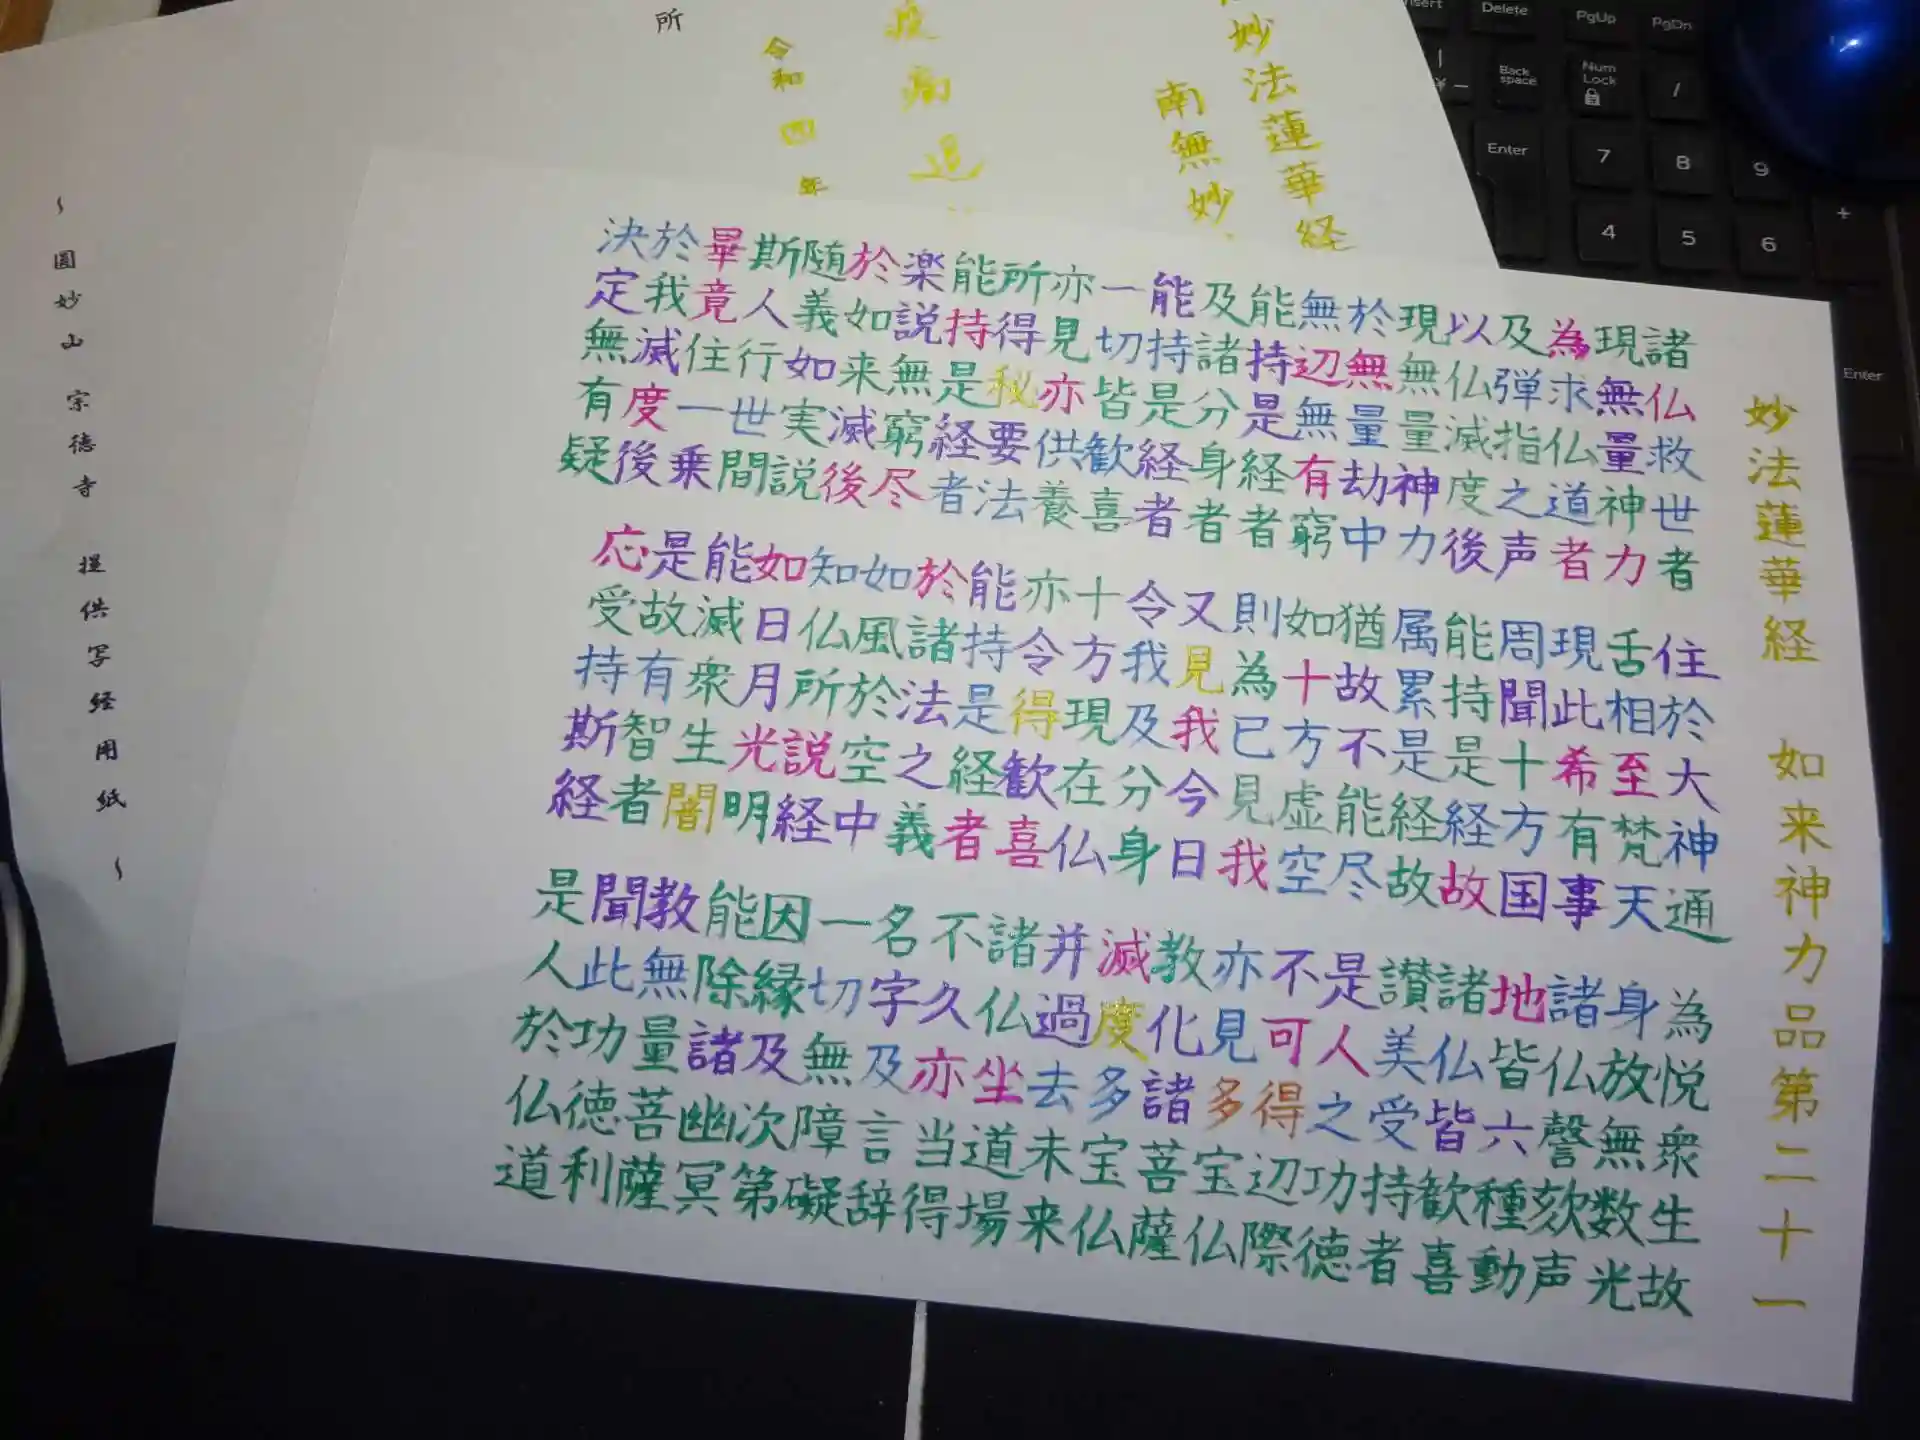 妙法蓮華経 如来神力品第二十一
諸仏救世者 住於大神通 為悦衆生故
現無量神力 舌相至梵天 身放無数光
為求仏道者 現此希有事 諸仏謦欬声
及弾指之声 周聞十方国 地皆六種動
以仏滅度後 能持是経故 諸仏皆歓喜
現無量神力 属累是経故 讃美受持者
於無量劫中 猶故不能尽 是人之功徳
無辺無有窮 如十方虚空 不可得辺際
能持是経者 則為已見我 亦見多宝仏
及諸分身者 又見我今日 教化諸菩薩
能持是経者 令我及分身 滅度多宝仏
一切皆歓喜 十方現在仏 并過去未来
亦見亦供養 亦令得歓喜 諸仏坐道場
所得秘要法 能持是経者 不久亦当得
能持是経者 於諸法之義 名字及言辞
楽説無窮尽 如風於空中 一切無障礙
於如来滅後 知仏所説経 因縁及次第
随義如実説 如日月光明 能除諸幽冥
斯人行世間 能滅衆生闇 教無量菩薩
畢竟住一乗 是故有智者 聞此功徳利
於我滅度後 応受持斯経 是人於仏道
決定無有疑
妙法蓮華経
南無妙
疫病退
令和四年
所
〜 圓妙山 宗徳寺 提供写経用紙 〜
Delete
PgUp
PgDn
Back space
Num Lock
/
Enter
7 8 9
+
4 5 6
Enter